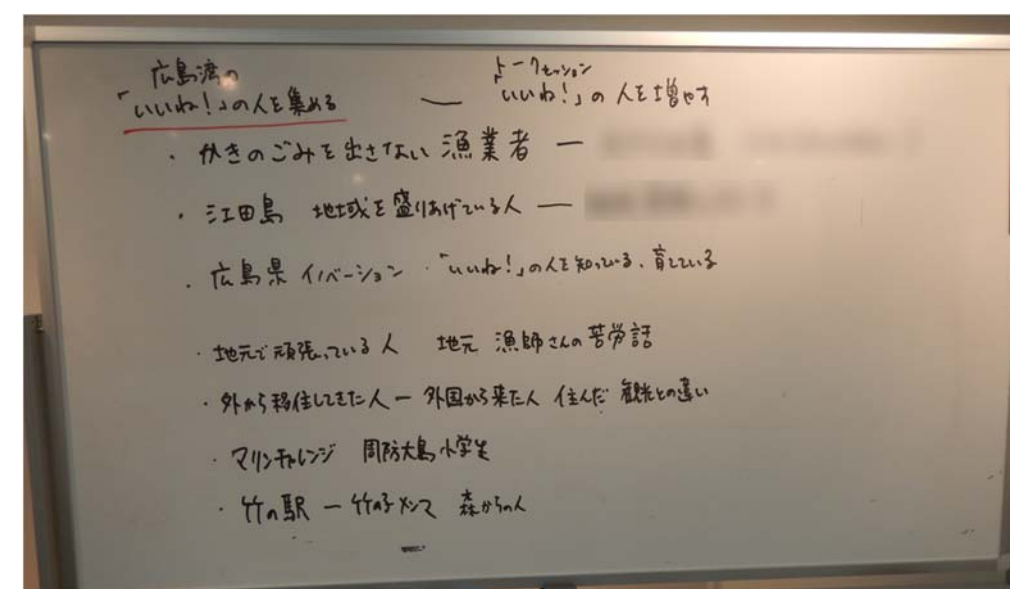 広島湾の
「いいね!」の人を集める ― トークセッション「いいね!」の人を増やす
・かきのごみを出さない漁業者 ―
・江田島 地域を盛りあげている人 ―
・広島県 イノベーション・「いいね!」の人を知っている、育てている
・地元で頑張っている人 地元 漁師さんの苦労話
・外から移住してきた人 ― 外国から来た人 住んだ 観光との違い
・マリンチャレンジ 周防大島小学生
・竹の駅 ― 竹の子メンマ 森からの人